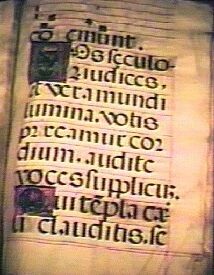 cinunt.
VOs seculo-
R iudices,
et vera mundi
lumina. votis
precamur cor
dium. audite
voces supplicũ.
Qui tẽpla cæ
li clauditis. se